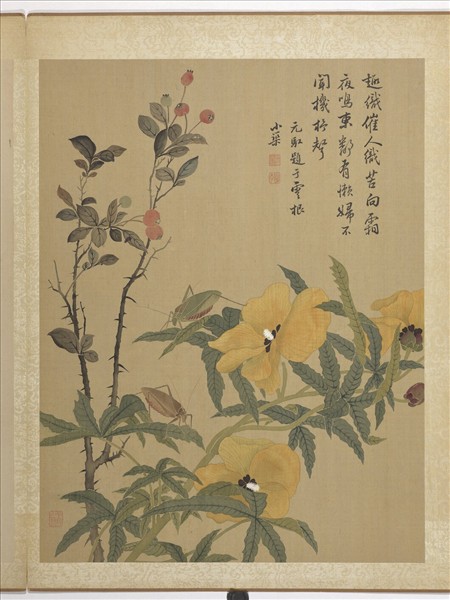 趣織催人織苦向霜
夜鳴東鄰有懶婦不
聞機杼聲
元題于雲根
小築